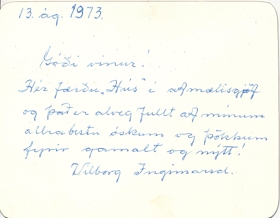 13. ág. 1973.
Góði vinur!
Hér færðu „Hús" í afmælisgjöf
og það er alveg fullt af mínum
allrabestu óskum og þökkum
fyrir gamalt og nýtt!
Vilborg Ingimarsd.